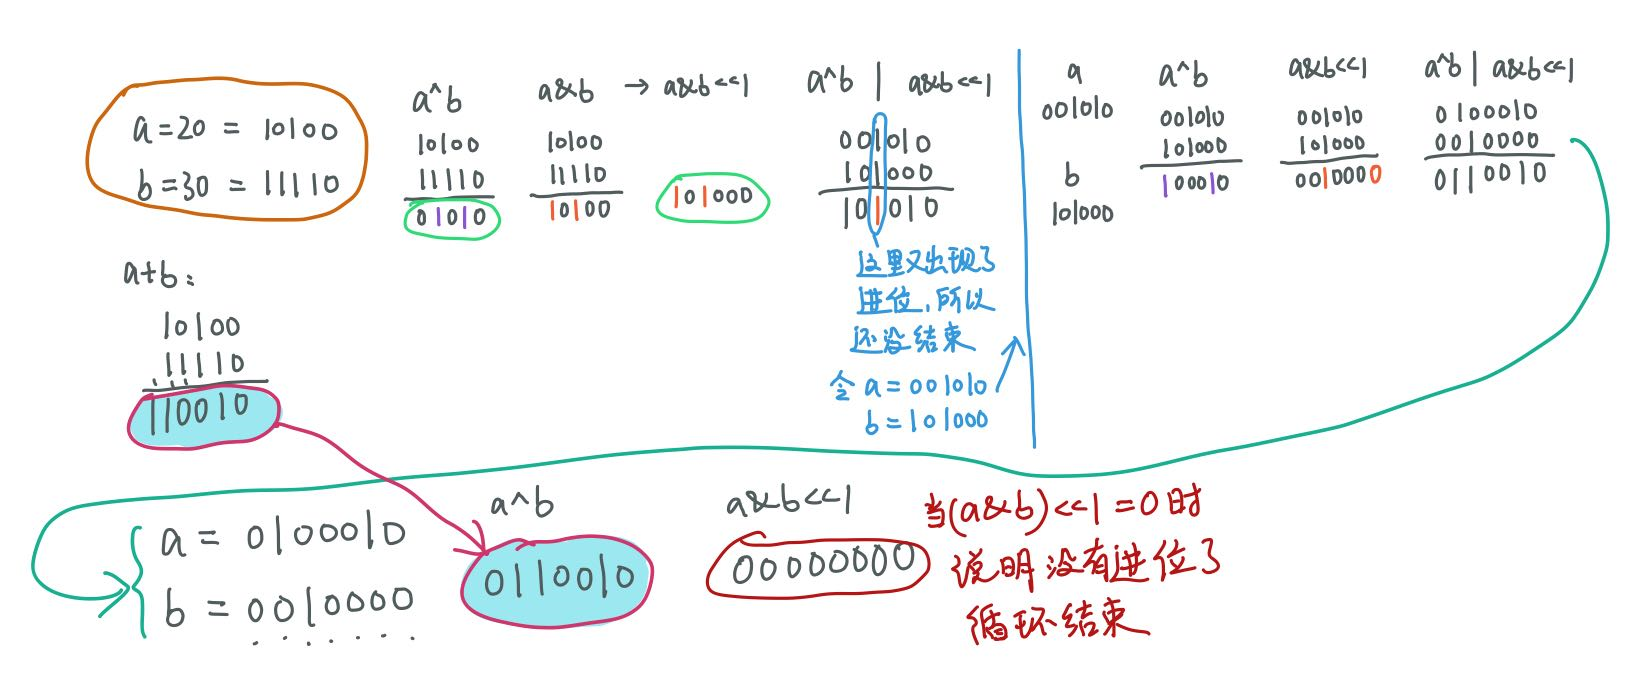 a=20 = 10100
b=30 = 11110
a^b
10100
11110
01010
a&b → a&b<<1
10100
11110
10100
101000
a^b | a&b<<1
001010
101000
101010
这里又出现了
进位,所以
还没结束
令 a=001010
b=101000
a
001010
b
101000
a^b
001010
101000
100010
a&b<<1
001010
101000
0010000
a^b | a&b<<1
0100010
0010000
0110010
a+b:
10100
11110
110010
a = 0100010
b = 0010000
a^b
0110010
a&b<<1
00000000
当(a&b)<<1=0时
说明没有进位了
循环结束